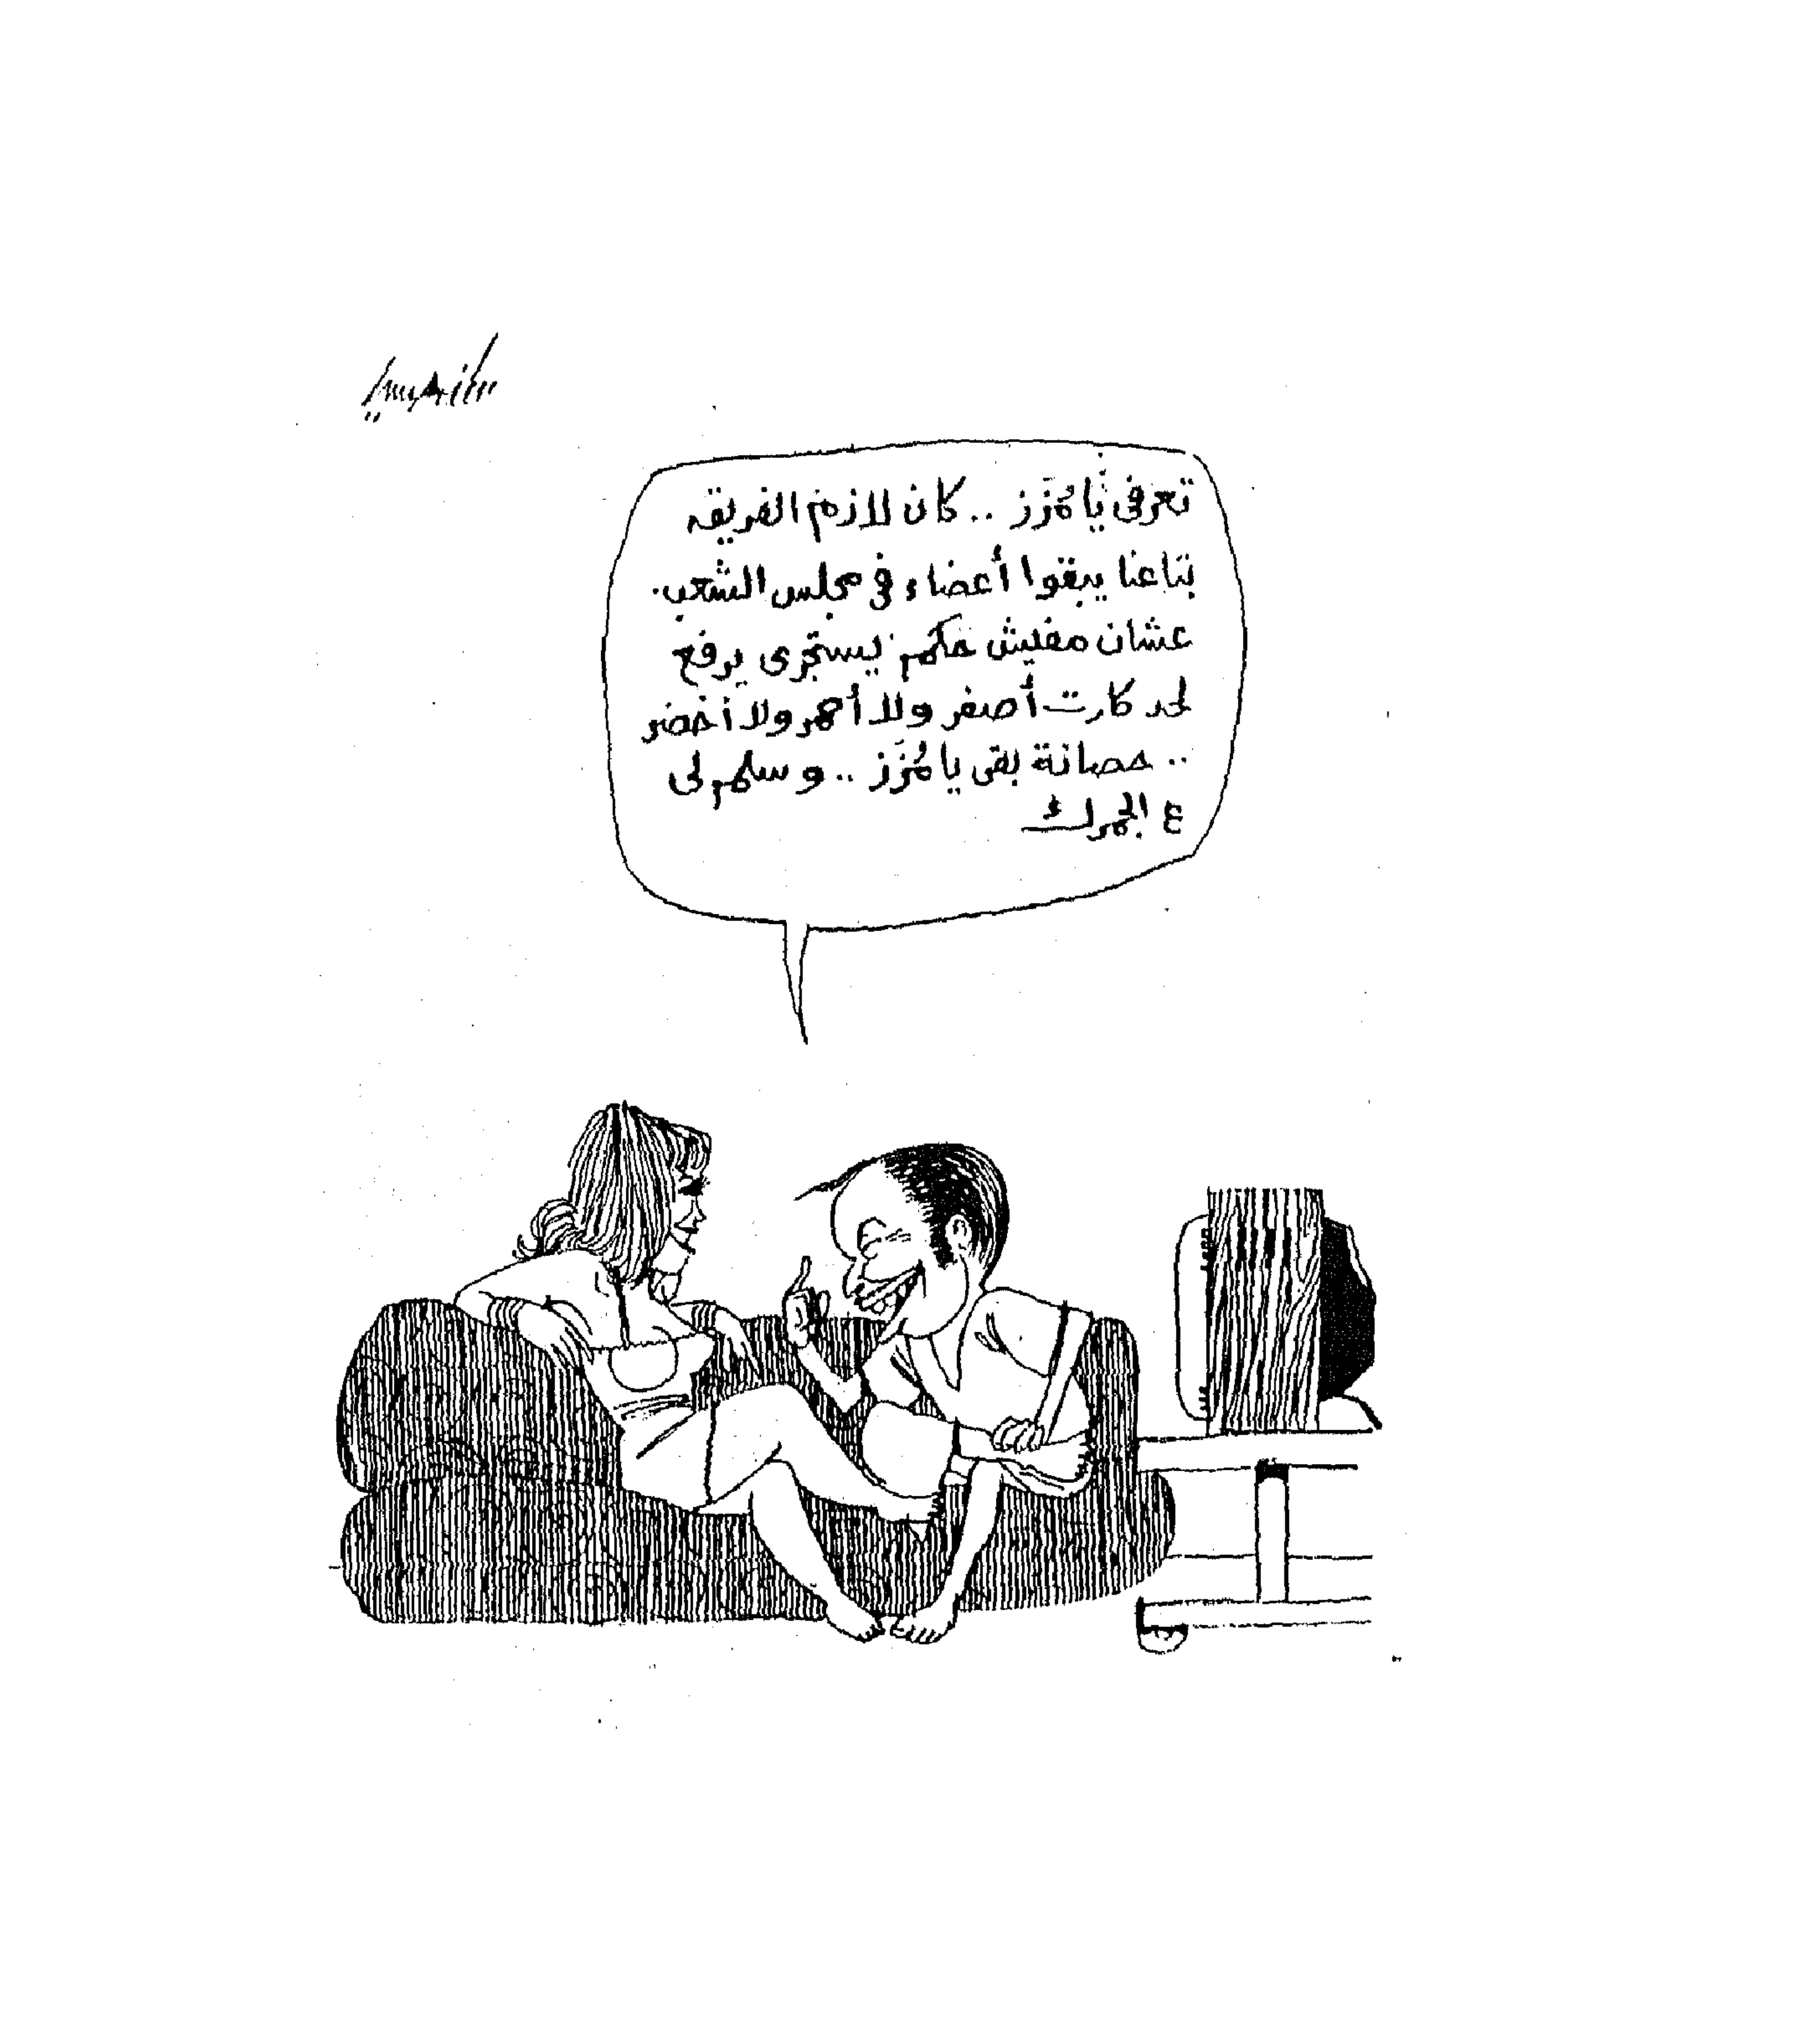 تعرفى يا مُزَز .. كان لازم الفريق
بتاعنا يبقوا أعضاء فى مجلس الشعب.
عشان مفيش حكم يستجرى يرفع
لحد كارت أصفر ولا أحمر ولا أخضر
.. حصانة بقى يا مُزَز .. وسلم لى
ع الجمرك